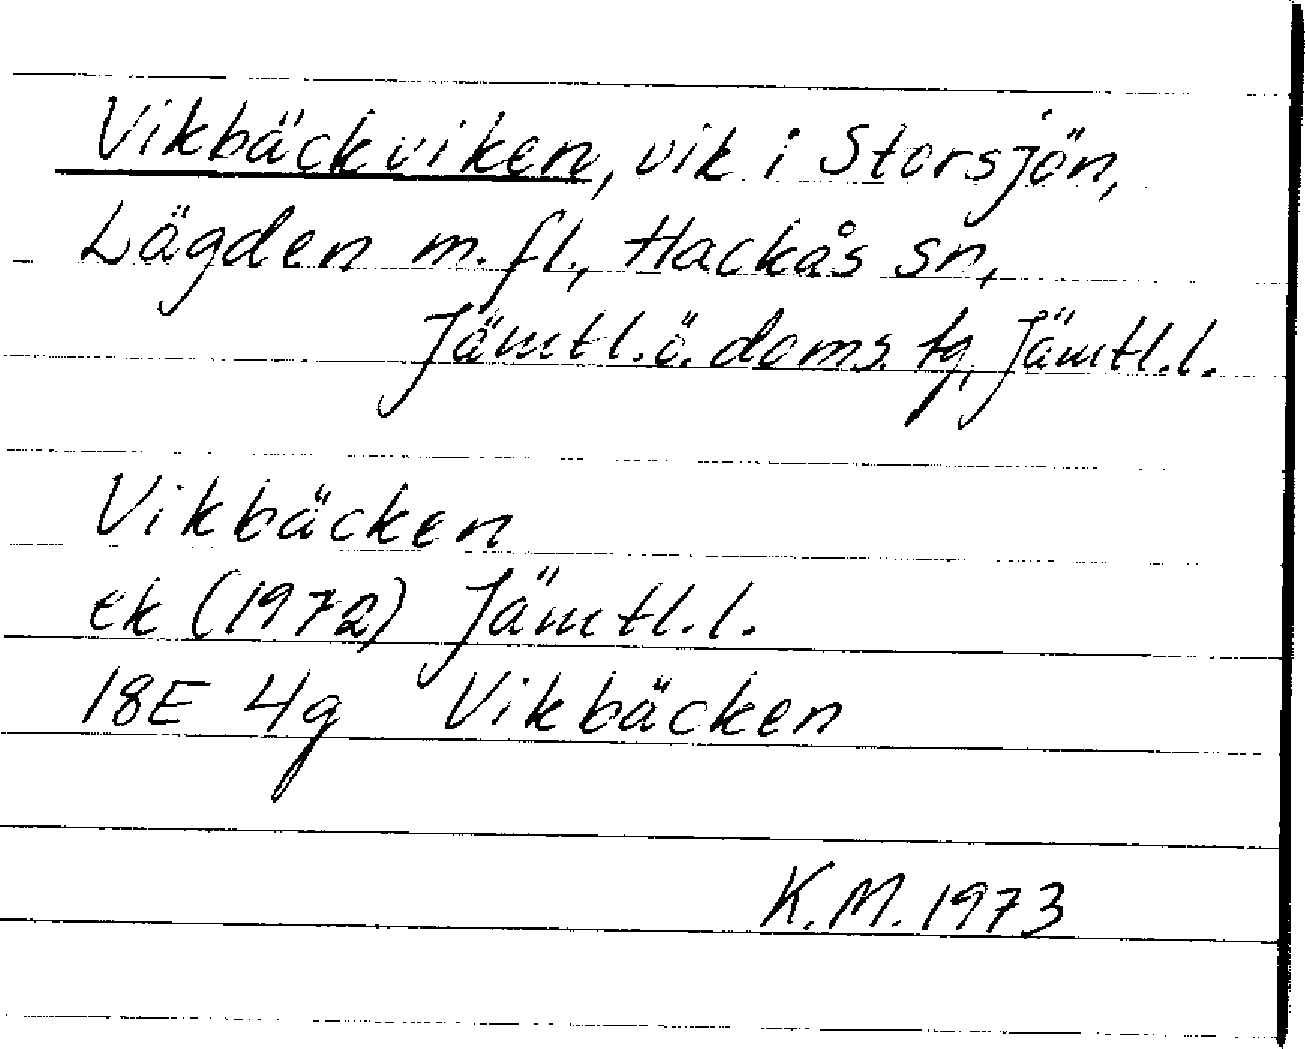 Vikbäckviken, vik i Storsjön,
Lägden m.fl., Hackås sn,
Jämtl.ö.doms.tg, Jämtl.l.
Vikbäcken
ek (1972) Jämtl.l.
18E 4g Vikbäcken
K.M. 1973